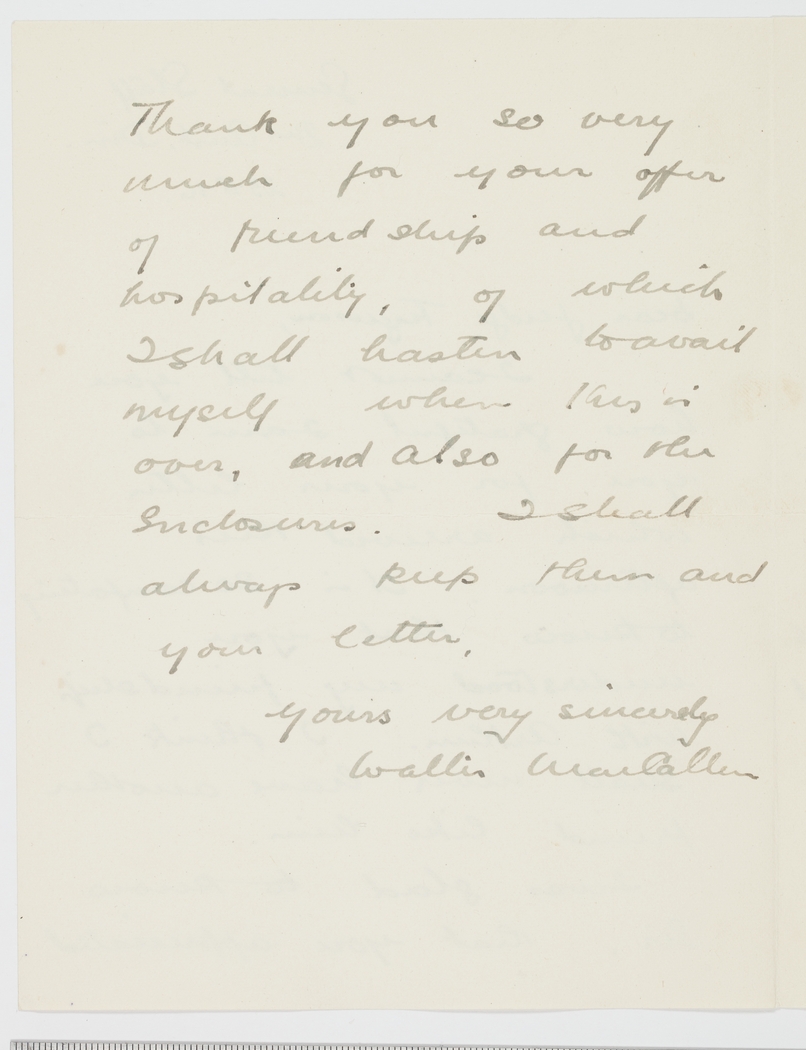 Thank you so very
much for your offer
of friendship and
hospitality, of which
I shall hasten to avail
myself when this is
over, and also for the
Enclosures. I shall
always keep them and
your letter.
Yours very sincerely
Wallis